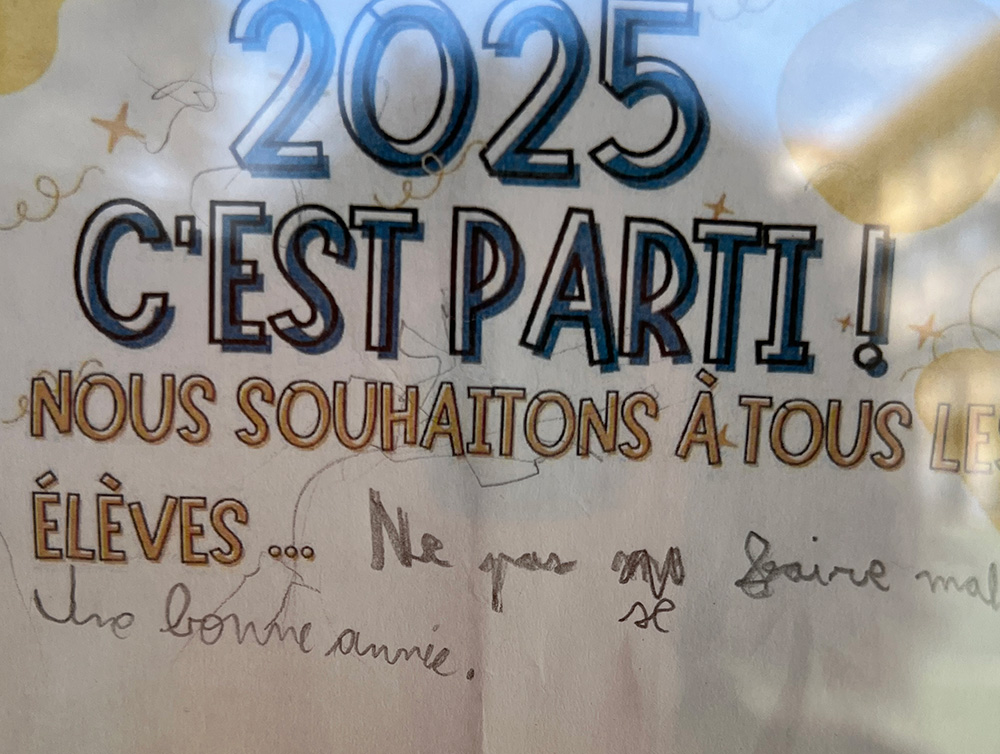 2025
C'EST PARTI !
NOUS SOUHAITONS À TOUS LES
ÉLÈVES ... Ne pas se faire mal
Une bonne année.